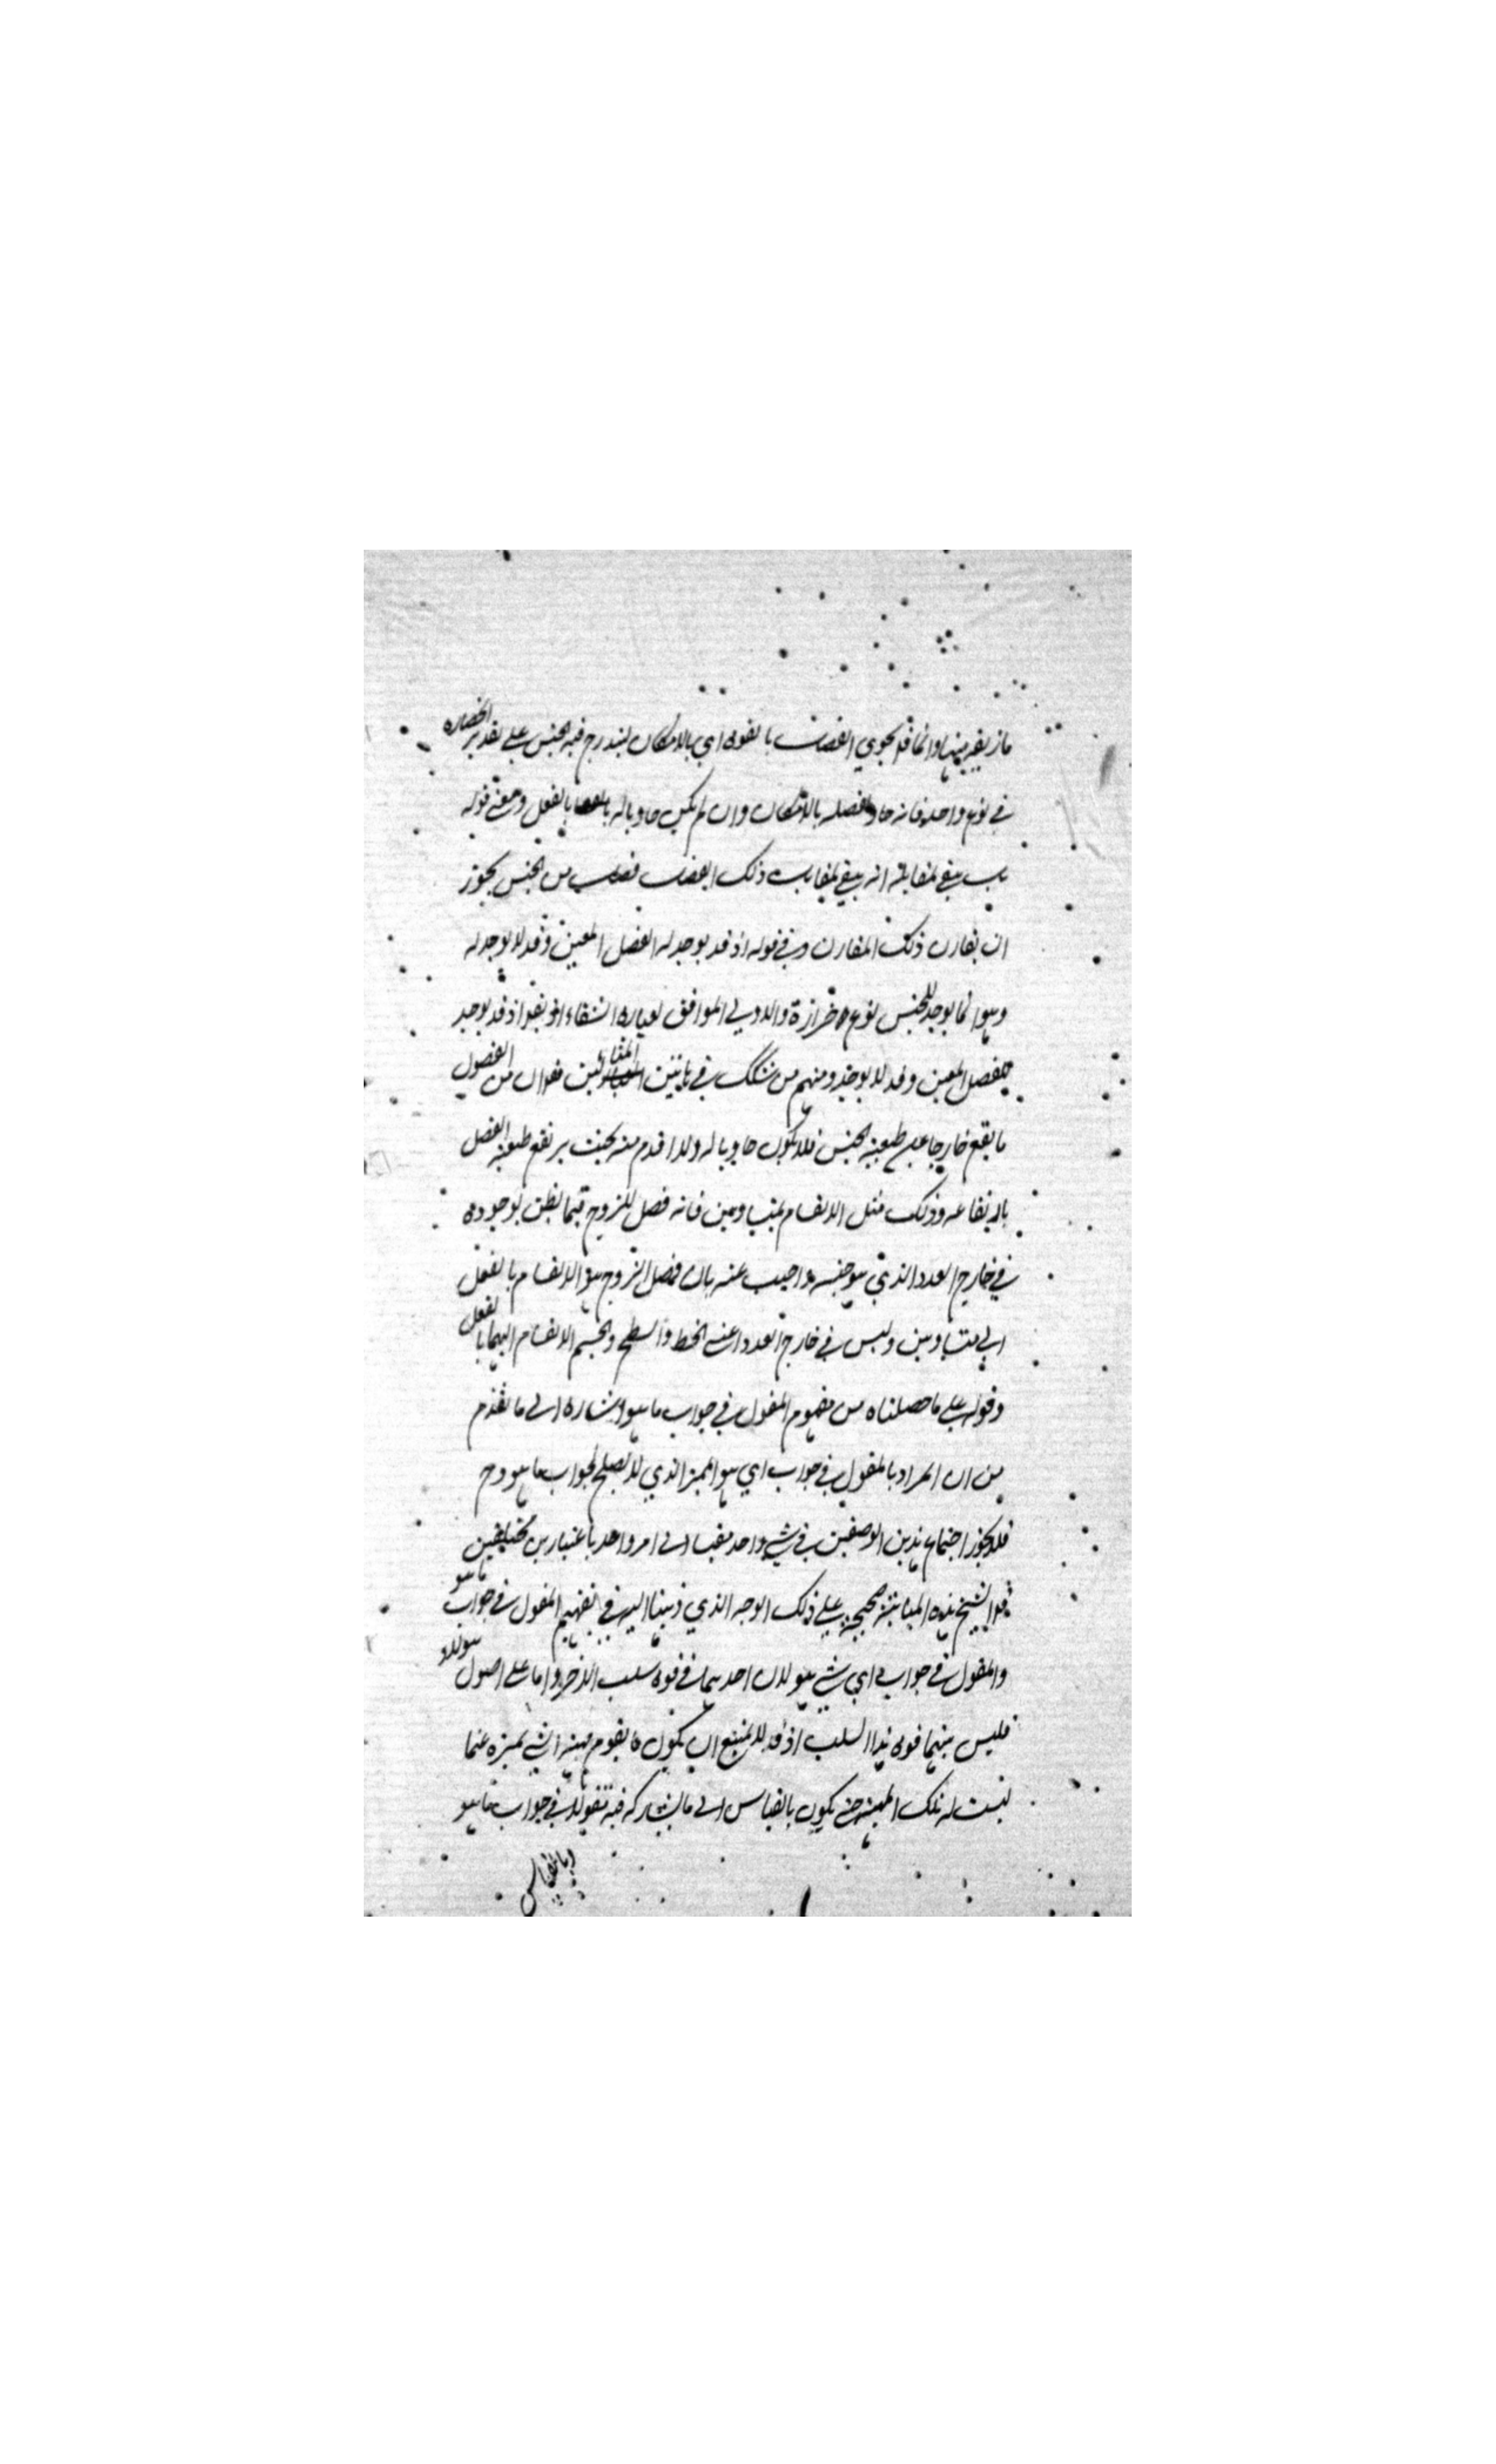 ما زيفه بينها وانما قد يحوي الفصل بالقوة اي بالامكان ليندرج فيه الجنس على تقدير انحصاره
في نوع واحد فانه حاو لفصله بالامكان وان لم يكن حاويا له بالفعل ومعنى قوله
يبقى لمقابلة انه يبقى لمقابلة ذلك الفصل فصل من الجنس يجوز
ان يقارن ذلك المقارن وفي قوله اذ قد يوجد له الفصل المعين وقد لا يوجد له
وهو انما يوجد للجنس نوع والاولى الموافق لعبارة الشفاء ان يقول اذ قد يوجد
للفصل المعين وقد لا يوجد ومنهم من شكك في هاتين المقابلتين فقال ان من الفصول
ما يقع خارجا عن طبيعة الجنس فلا يكون حاويا له ولا اقدم منه بحيث يرتفع طبيعة الفصل
بارتفاعه وذلك مثل الانقسام بمتساويين فانه فصل للزوج فيما يظن لوجوده
في خارج العدد الذي هو جنسه واجيب عنه بان فصل الزوج هو الانقسام بالفعل
الى متساويين وليس في خارج العدد اعني الخط والسطح والجسم الانقسام اليهما بالفعل
وقوله على ما حصلناه من مفهوم المقول في جواب ما هو اشارة الى ما تقدم
من ان المراد بالمقول في جواب اي هو المميز الذي لا يصلح لجواب ما هو وح
فلا يجوز اجتماع هذين الوصفين في شيء واحد مقيسا الى امر واحد باعتبارين مختلفين
قوله الشيخ هذه المباينة صحيحة على ذلك الوجه الذي ذهبنا اليه في تفهيم المقول في جواب ما هو
والمقول في جواب اي شيء هو لان احديهما في قوة سلب الاخر واما على اصول هؤلاء
فليس بينهما قوة هذا السلب اذ لا يمتنع ان يكون ما يقوم مهية الشيء يميزه عما
ليست له تلك المهية حتى يكون بالقياس الى ما يشاركه فيه مقولا في جواب ما هو
وبالقياس